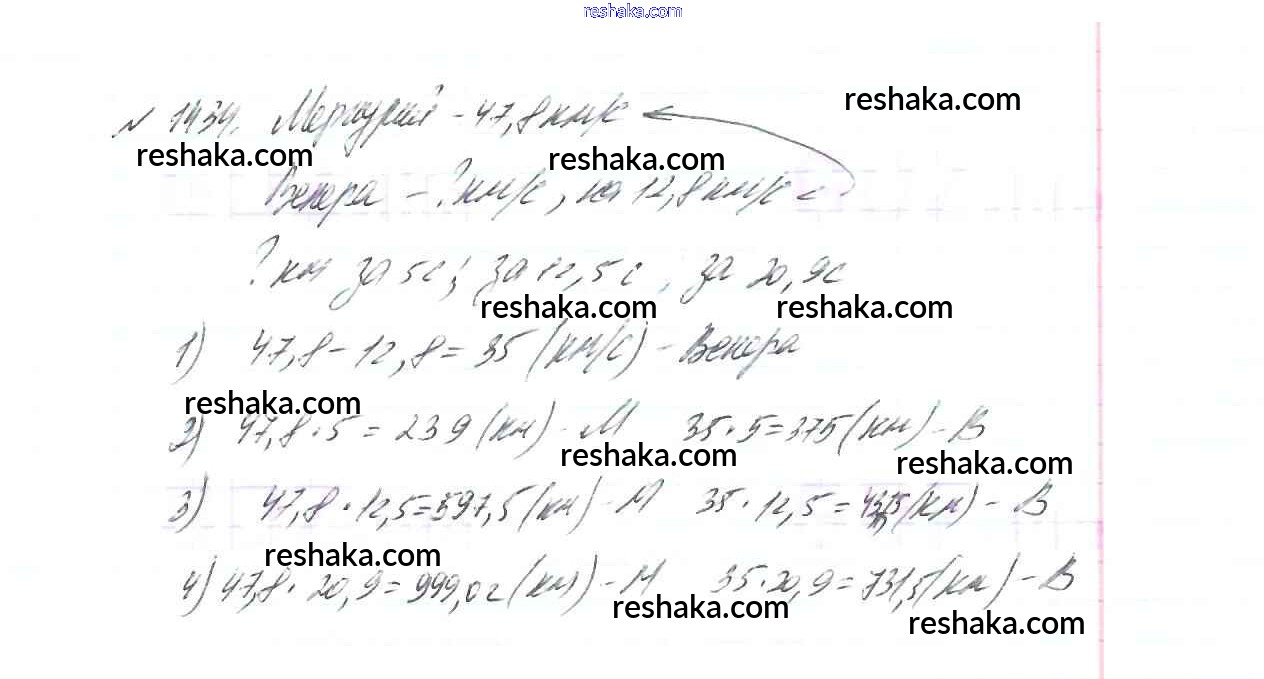 reshaka.com
№ 1434. Меркурий - 47,8 км/с
reshaka.com
reshaka.com
reshaka.com
Венера - ? км/с, на 12,8 км/с <
? км за 5с; за 12,5с, за 20,9с
reshaka.com
reshaka.com
1) 47,8 - 12,8 = 35 (км/с) - Венера
reshaka.com
2) 47,8 · 5 = 239 (км) - М 35 · 5 = 375 (км) - В
reshaka.com
reshaka.com
3) 47,8 · 12,5 = 597,5 (км) - М 35 · 12,5 = (км) - В
reshaka.com
4) 47,8 · 20,9 = 999,02 (км) - М 35 · 20,9 = 731,5 (км) - В
reshaka.com
reshaka.com